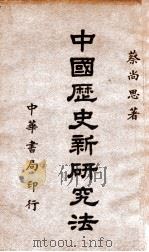 蔡尚思著
中國歷史新研究法
中華書局印行
www.topduxiu.com